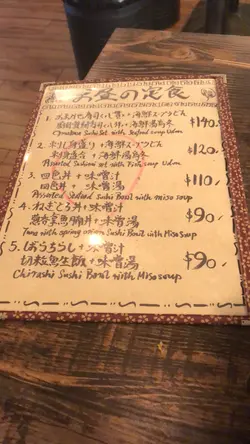 お昼の定食
1. おまかせ寿司八貫 + 海鮮スープうどん
廚師發辦寿司八件 + 海鮮湯烏冬
Omakase Sushi Set with Seafood soup Udon
$140.
2. 刺し身盛り + 海鮮スープうどん
刺身盛合 + 海鮮湯烏冬
Assorted Sashimi set with Fish soup Udon
$120.
3. 四色丼 + 味噌汁
四色丼 + 味噌湯
Assorted Seafood Sushi Bowl with miso soup
$110.
4. ねぎとろ丼 + 味噌汁
葱吞拿魚腩丼 + 味噌湯
Tuna with spring onion Sushi Bowl with Miso soup
$90.
5. ばらちらし + 味噌汁
切粒魚生飯 + 味噌湯
Chirashi Sushi Bowl with Miso soup
$90.